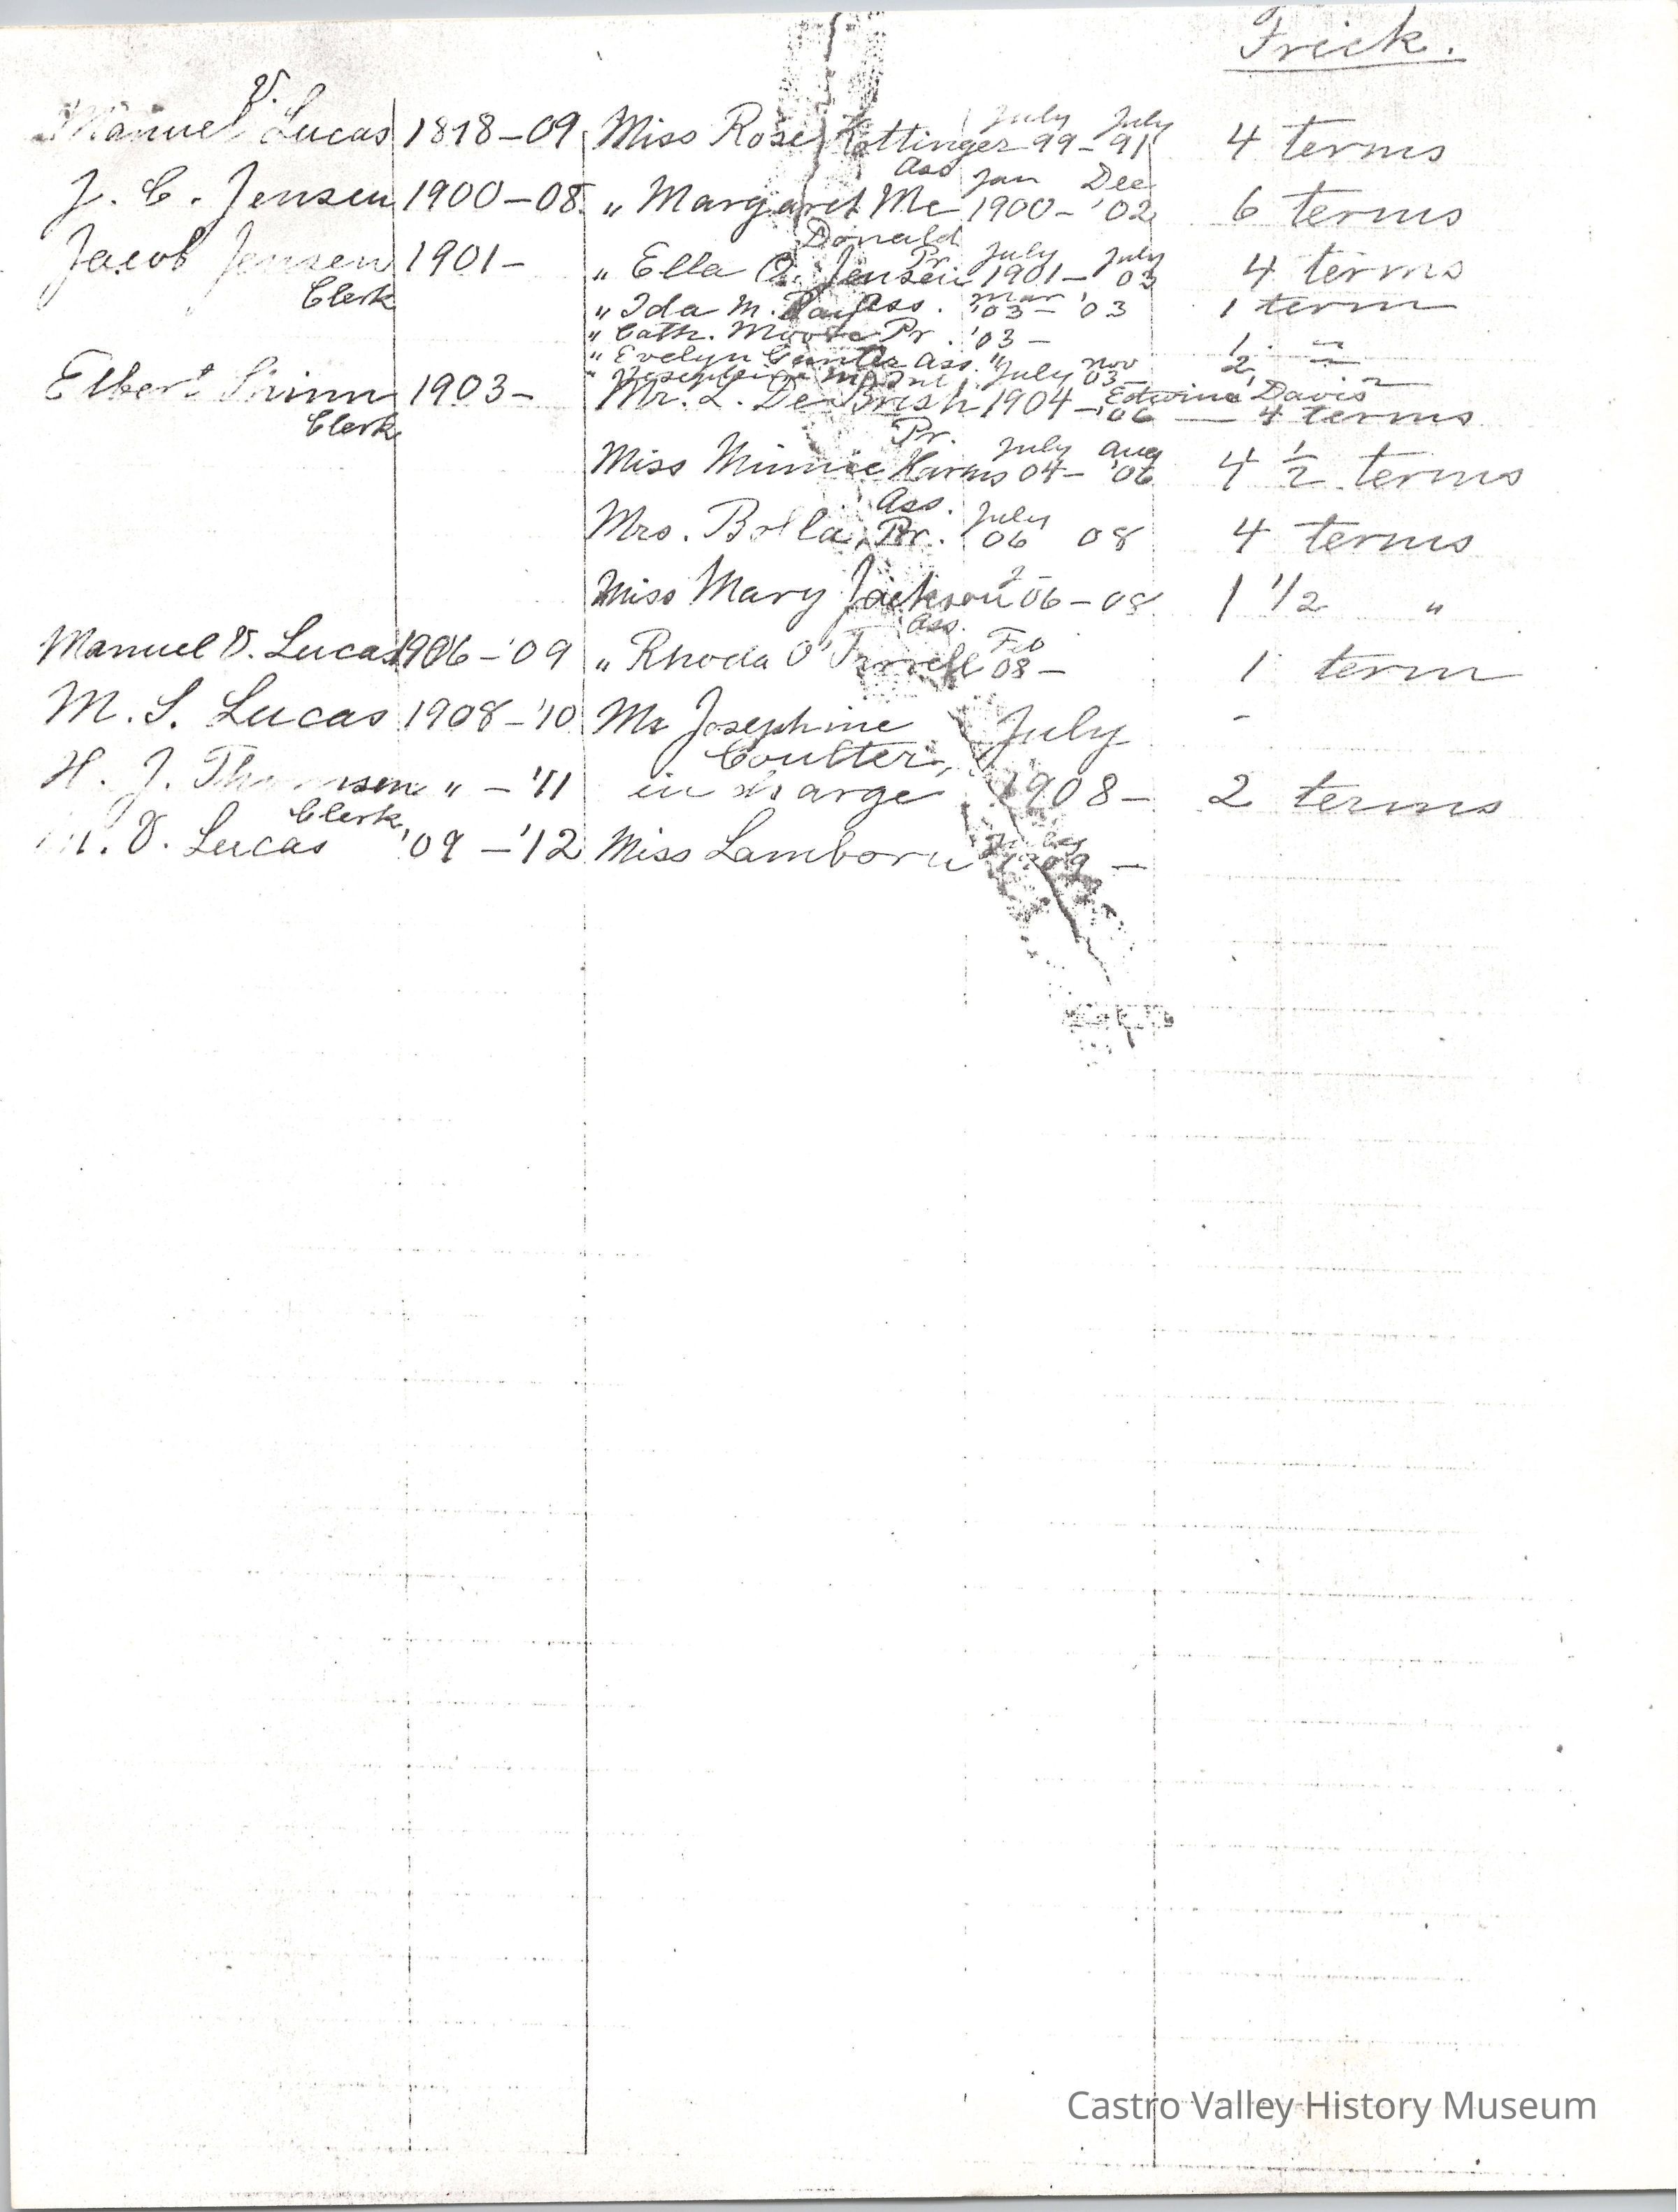 Frick.
Manuel V. Lucas 1898-09 Miss Rose Kottinger July 99 - July 91 4 terms
J. C. Jensen 1900-08 " Margaret Mc Donald Ass Jan 1900 - Dec '02 6 terms
Jacob Jensen Clerk 1901- " Ella Jensen Pr. July 1901 - July 03 4 terms
" Ida M. Ass. Mar '03 - '03 1 term
" Cath. Moore Pr. '03 - 1 "
" Evelyn Ass. " 2 "
" Josephine July Nov 03 Edwina Davis
Elbert Clerk 1903- Mr. L. De Pr. 1904 - '06 — 4 terms
Miss Minnie Harms Ass. July 04 - Aug '06 4 1/2 terms
Mrs. Bolla, Pr. July 06 08 4 terms
Miss Mary Jackson Ass. 06 - 08 1 1/2 "
Manuel V. Lucas 1906 - '09 " Rhoda Feb 08 - 1 term
M. S. Lucas 1908 - '10 Mr Josephine July -
Coulter,
H. J. Clerk " - '11 in charge 1908 - 2 terms
M. V. Lucas '09 - '12 Miss Lamborn 1909 -
Castro Valley History Museum